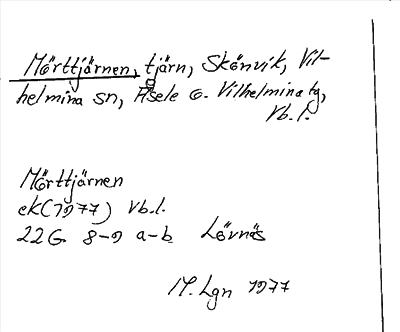 Mörttjärnen, tjärn, Skönvik, Vil-
helmina sn, Åsele o. Vilhelmina tg,
Vb.l.
Mörttjärnen
ek(1977) Vb.l.
22G 8-9 a-b Lövnäs
M. Lgn 1977